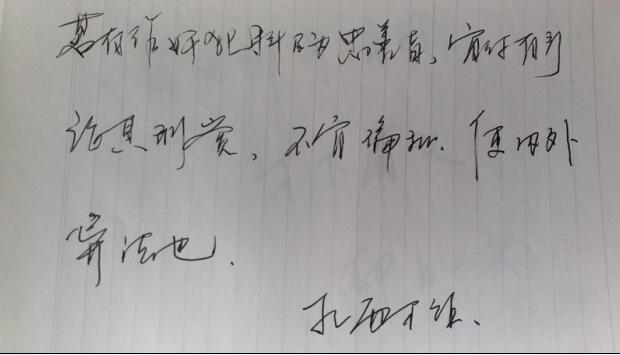 若有作奸犯科及为忠善者,宜付有司
论其刑赏,不宜偏私.使内外
异法也.